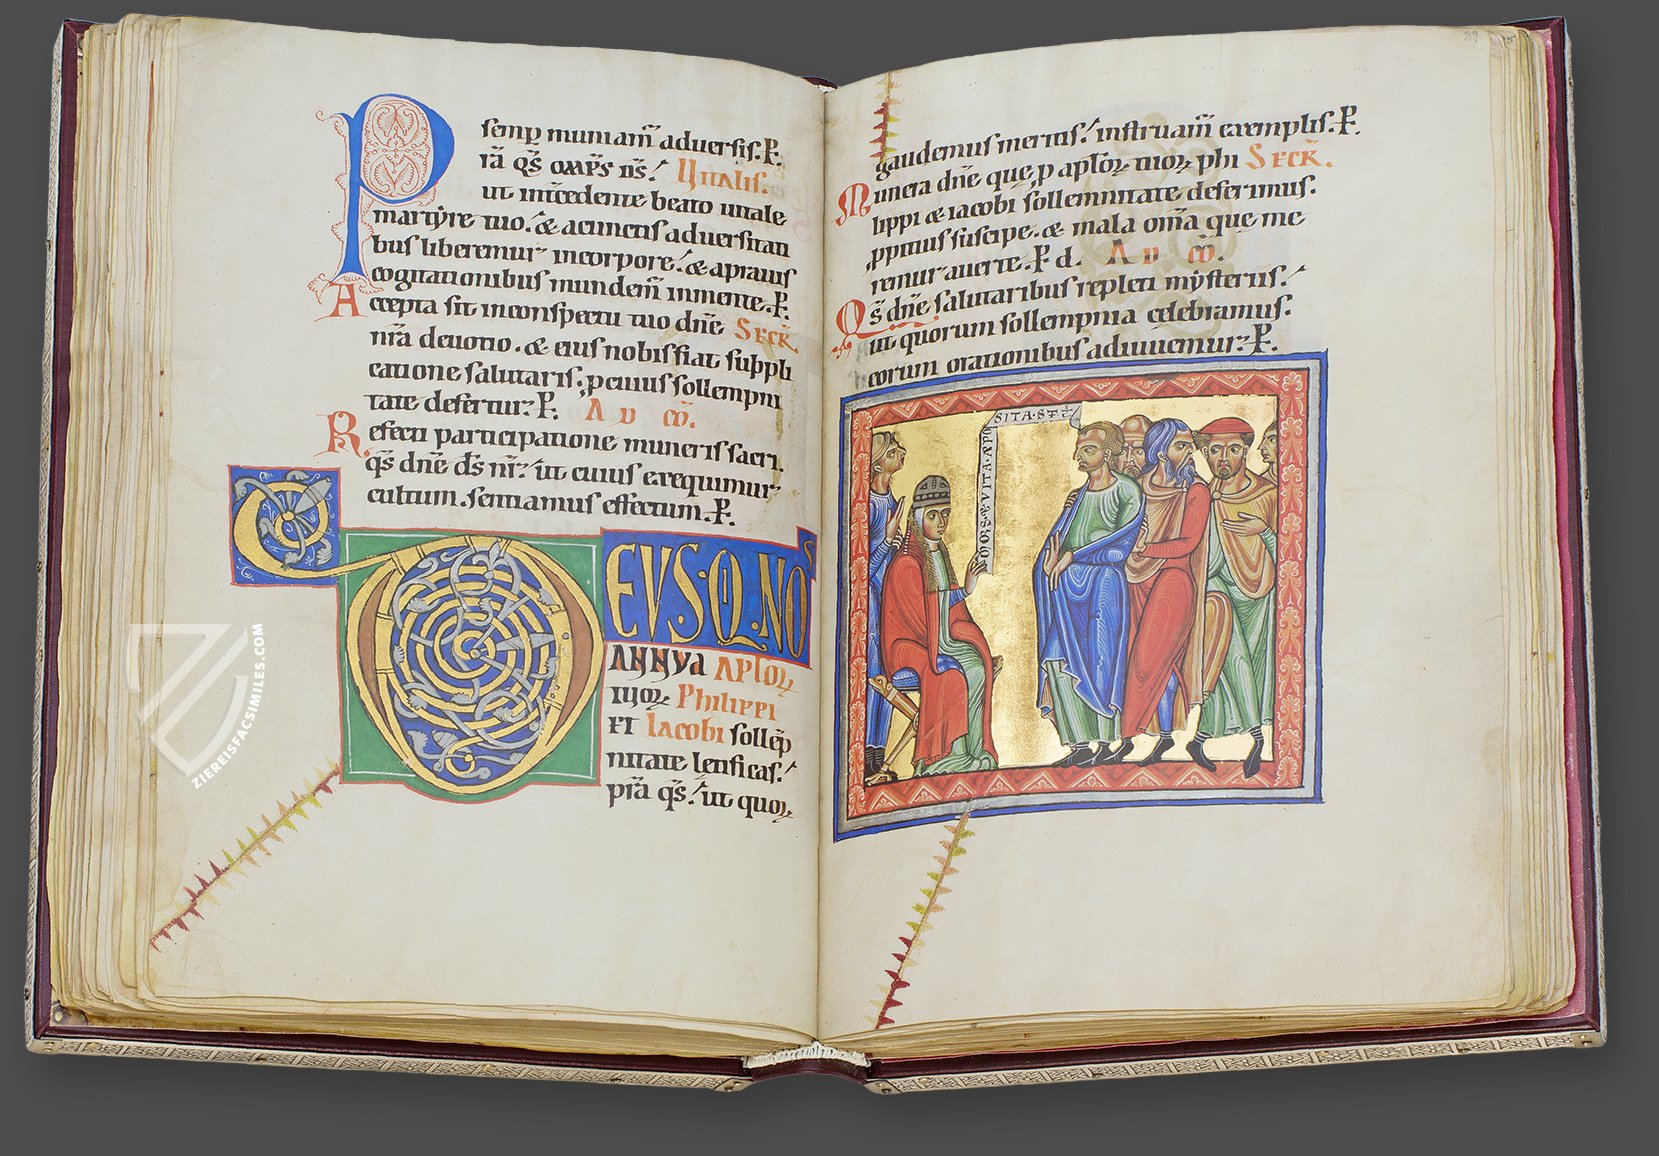 semp muniam̄ adversis. P.
rā q̄s om̄ps d̄s. Vitalis.
ut intcedente beato uitale
martẏre tuo. & a cunctis aduersitati
bus liberemur in corpore. & a prauis
cogitationibus mundem̄ in mente. P.
Accepta sit in conspectu tuo dn̄e SECR̄.
nr̄a deuotio. & eius nobis fiat suppli
catione salutaris. p cuius sollempni
tate defertur. P. AD CŌ.
Refecti participatione muneris sacri.
q̄s dn̄e d̄s nr̄. ut cuius exequimur
cultum. sentiamus effectum. P.
DEUS. Q. NOS
ANNUA APLOꝜ
tuoꝝ Philippi
ET Iacobi sollēp
nitate letificas.
pr̄a q̄s. ut quoꝝ
gaudemus meritis. instruam̄ exemplis. P.
Munera dn̄e que p aploꝝ tuoꝝ phi SECR̄.
lippi & iacobi sollemnitate deferimus.
ppitius suscipe. & mala om̄a que me
remur auerte. P d. AD CŌ.
Q̄s dn̄e salutaribus repleti mẏsteriis.
ut quorum sollempnia celebramus.
eorum orationibus adiuuemur. P.
VITA. APO
SITA. S
ZIEREISFACSIMILES.COM